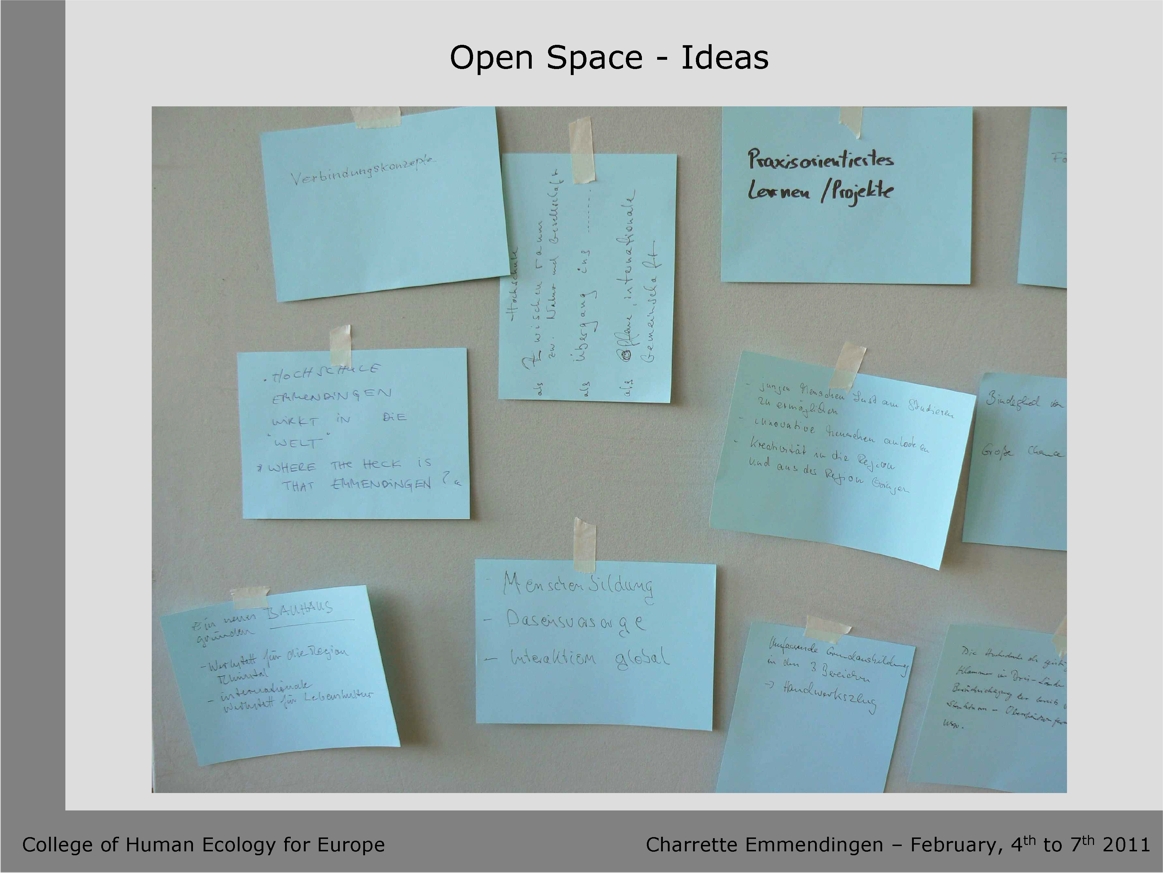 Open Space - Ideas
Verbindungskonzepte
Hochschule
als Zwischenraum
zw. Natur und Gesellschaft
als Übergang ins ........
als Offene, internationale
Gemeinschaft
Praxisorientiertes
Lernen / Projekte
• HOCHSCHULE
EMMENDINGEN
WIRKT IN DIE
"WELT"
* WHERE THE HECK IS
THAT EMMENDINGEN ?
- jungen Menschen Lust am Studieren
zu ermöglichen
- innovative Menschen anlocken
- Kreativität in die Region
und aus der Region bringen
Bindeglied
Große Chance
ein neues BAUHAUS
gründen
- Werkstatt für die Region
- internationale
Werkstatt für Lebenskultur
- Menschenbildung
- Daseinsvorsorge
- Interaktion global
Umfassende Grundausbildung
in den 3 Bereichen
→ Handwerkszeug
Die Hochschule als
College of Human Ecology for Europe
Charrette Emmendingen – February, 4th to 7th 2011